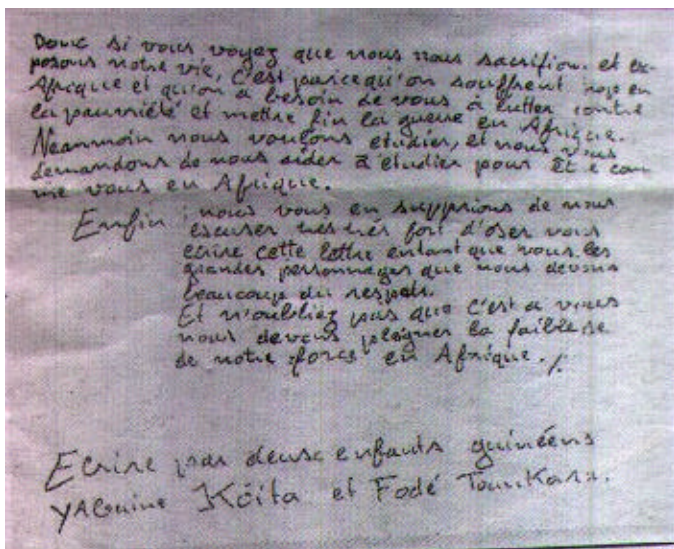 Donc si vous voyez que nous nous sacrifions et ex-
posons notre vie, c'est parce qu'on souffrent trop en
Afrique et qu'on a besoin de vous à lutter contre
la pauvriété et mettre fin la guerre en Afrique.
Neanmoin nous voulons etudier, et nous vous
demandons de nous aider à etudier pour être com
me vous en Afrique.
Enfin : nous vous en supprions de nous
escuser très très fort d'oser vous
ecrire cette lettre entant que vous les
grandes personnages que nous devons
beaucoup du respets.
Et n'oubliez pas que c'est a vous
nous devons plaigner la faiblesse
de notre force en Afrique./.
Ecrire par deux enfants guinéens
YAGuine Koïta et Fodé Tounkara.